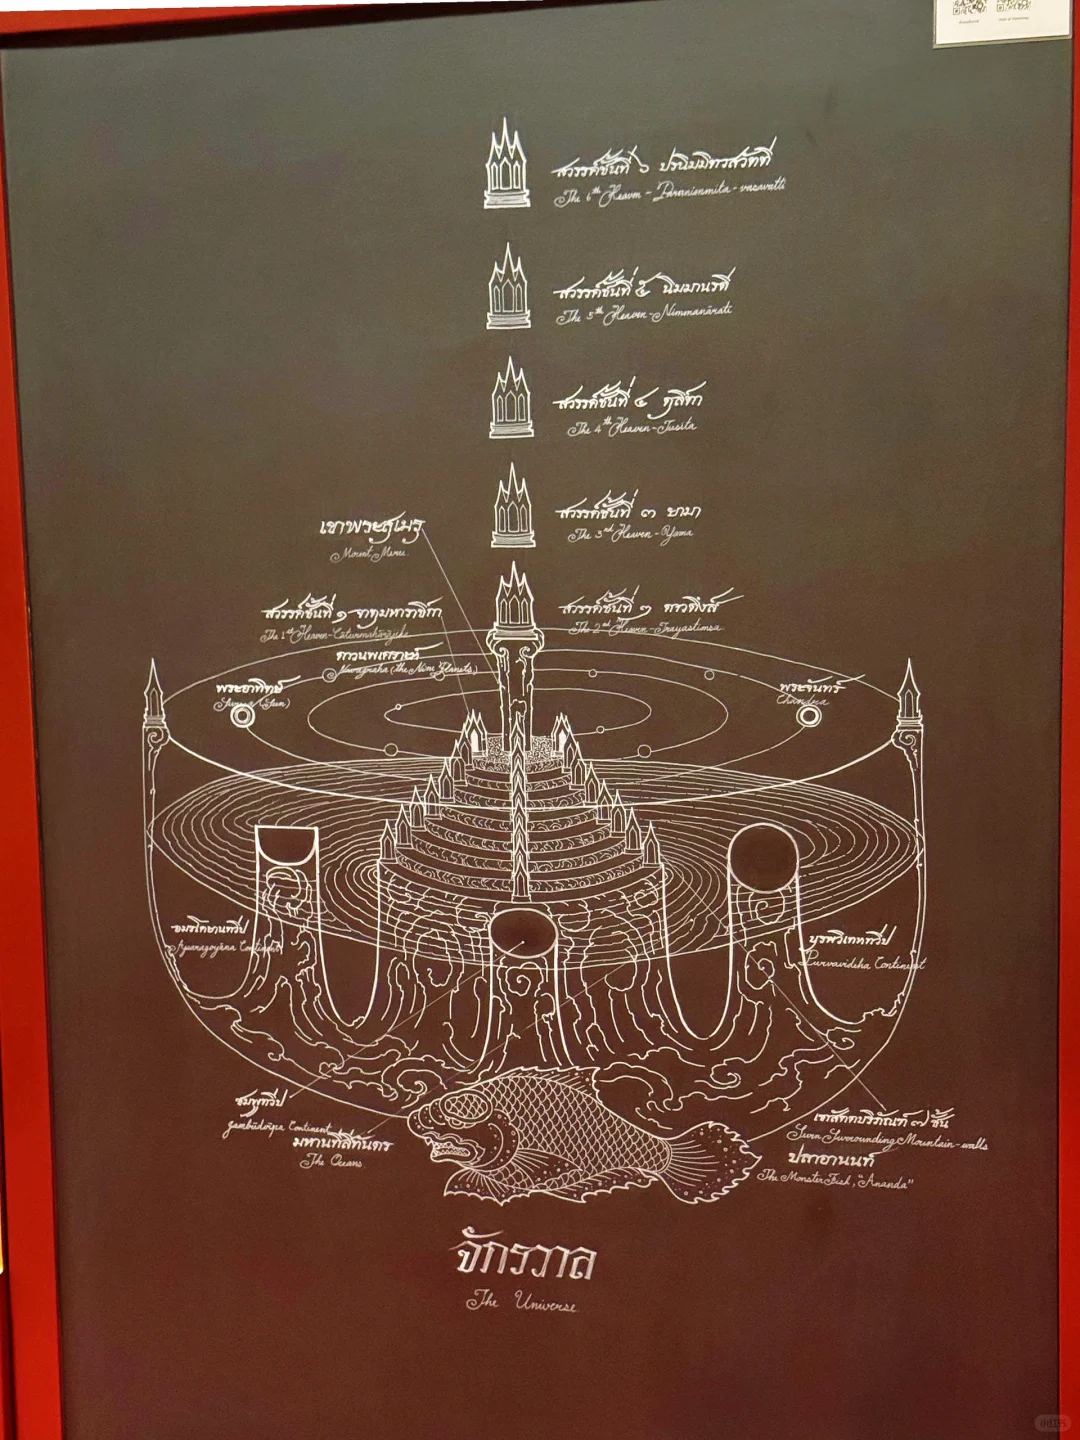 สวรรค์ชั้นที่ ๖ ปรนิมมิตวสวัตตี
The 6th Heaven - Paranimmita-vasavatti
สวรรค์ชั้นที่ ๕ นิมมานรดี
The 5th Heaven - Nimmanārati
สวรรค์ชั้นที่ ๔ ดุสิตา
The 4th Heaven - Tusita
สวรรค์ชั้นที่ ๓ ยามา
The 3rd Heaven - Yama
เขาพระสุเมรุ
Mount Meru
สวรรค์ชั้นที่ ๑ จาตุมหาราชิกา
The 1st Heaven - Cāturmahārājika
สวรรค์ชั้นที่ ๒ ดาวดึงส์
The 2nd Heaven - Trayastimsa
ดาวนพเคราะห์
Navagraha (the Nine Planets)
พระอาทิตย์
Surya (Sun)
พระจันทร์
Chandra
อมรโคยานทวีป
Aparagoyāna Continent
บุรพวิเทหทวีป
Purvavideha Continent
ชมพูทวีป
Jambūdvīpa Continent
มหานทีสีทันดร
The Oceans
เขาสัตตบริภัณฑ์ ๗ ชั้น
Seven Surrounding Mountain-walls
ปลาอานนท์
The Monster Fish, "Ananda"
จักรวาล
The Universe